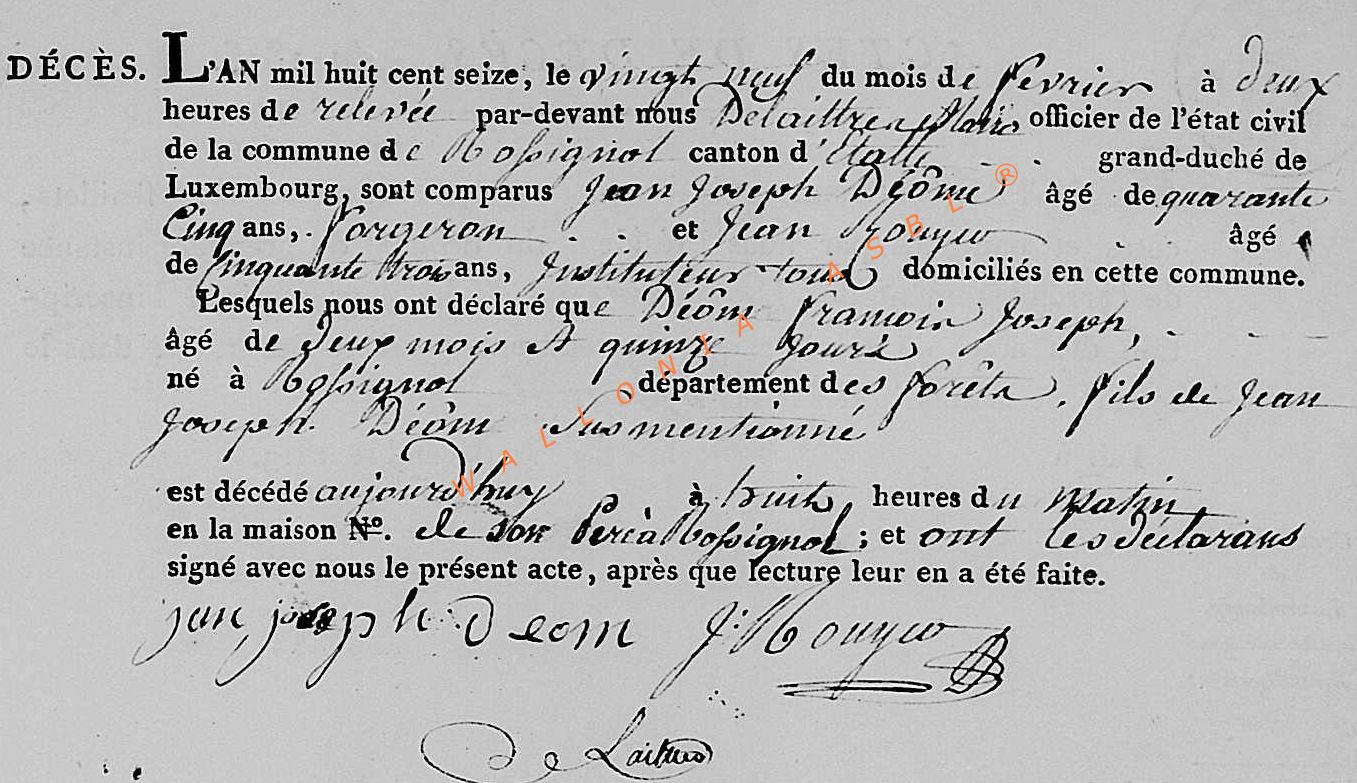 DÉCÈS. L'AN mil huit cent seize, le vingt neuf du mois de fevrier à deux
heures de relevée par-devant nous Delaittre Maire officier de l'état civil
de la commune de Rossignol canton d'Etalle grand-duché de
Luxembourg, sont comparus Jean Joseph Déôme âgé de quarante
Cinq ans, forgeron et Jean Rouyer âgé
de Cinquante trois ans, Instituteur tous domiciliés en cette commune.
Lesquels nous ont déclaré que Déôm François Joseph,
âgé de deux mois et quinze jours
né à Rossignol département des forêts, fils de Jean
Joseph Déôm Susmentionné
est décédé aujourd'huy à huit heures du matin
en la maison Nº. de son Père à Rossignol ; et ont les déclarans
signé avec nous le présent acte, après que lecture leur en a été faite.
jean joseph Deom J: Rouyer
De Laittres
WALLONIA ASBL ®